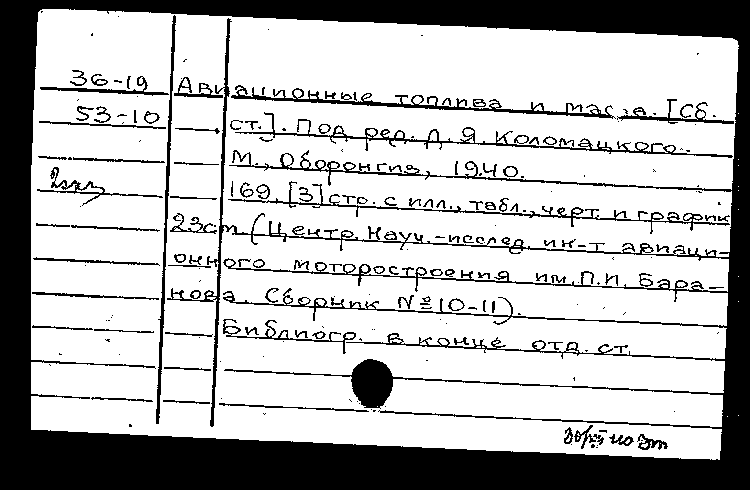 36-19 Авиационные топлива и масла. [Сб.
53-10 ст.]. Под ред. Д. Я. Коломацкого.
М., Оборонгиз, 1940.
2 экз
169, [3] стр. с илл., табл., черт. и график
23см. (Центр. науч.-исслед. ин-т авиаци-
онного моторостроения им. П.И. Бара-
нова. Сборник №10-11).
Библиогр. в конце отд. ст.